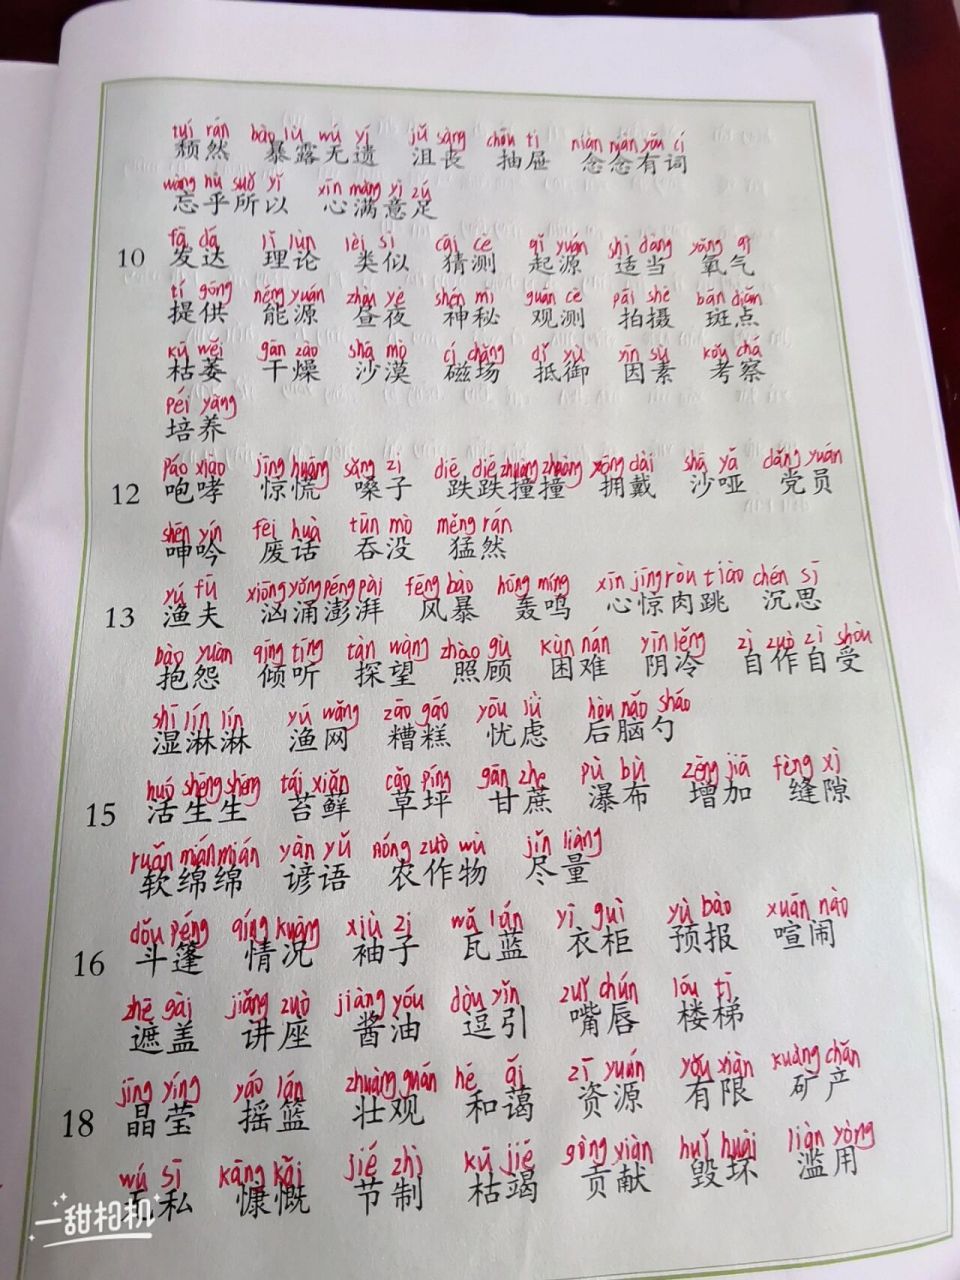 tuí rán bào lù wú yí jǔ sàng chōu ti niàn niàn yǒu cí
颓然 暴露无遗 沮丧 抽屉 念念有词
wàng hū suǒ yǐ xīn mǎn yì zú
忘乎所以 心满意足
fā dá lǐ lùn lèi sì cāi cè qǐ yuán shì dàng yǎng qì
10 发达 理论 类似 猜测 起源 适当 氧气
tí gōng néng yuán zhòu yè shén mì guān cè pāi shè bān diǎn
提供 能源 昼夜 神秘 观测 拍摄 斑点
kū wěi gān zào shā mò cí chǎng dǐ yù yīn sù kǎo chá
枯萎 干燥 沙漠 磁场 抵御 因素 考察
péi yǎng
培养
páo xiào jīng huāng sǎng zi diē diē zhuàng zhuàng yōng dài shā yǎ dǎng yuán
12 咆哮 惊慌 嗓子 跌跌撞撞 拥戴 沙哑 党员
shēn yín fèi huà tūn mò měng rán
呻吟 废话 吞没 猛然
yú fū xiōng yǒng péng pài fēng bào hōng míng xīn jīng ròu tiào chén sī
13 渔夫 汹涌澎湃 风暴 轰鸣 心惊肉跳 沉思
bào yuàn qīng tīng tàn wàng zhào gù kùn nán yīn lěng zì zuò zì shòu
抱怨 倾听 探望 照顾 困难 阴冷 自作自受
shī lín lín yú wǎng zāo gāo yōu lǜ hòu nǎo sháo
湿淋淋 渔网 糟糕 忧虑 后脑勺
huó shēng shēng tái xiǎn cǎo píng gān zhe pù bù zēng jiā fèng xì
15 活生生 苔鲜 草坪 甘蔗 瀑布 增加 缝隙
ruǎn mián mián yàn yǔ nóng zuò wù jǐn liàng
软绵绵 谚语 农作物 尽量
dǒu péng qíng kuàng xiù zi wǎ lán yī guì yù bào xuān nào
16 斗篷 情况 袖子 瓦蓝 衣柜 预报 喧闹
zhē gài jiǎng zuò jiàng yóu dòu yǐn zuǐ chún lóu tī
遮盖 讲座 酱油 逗引 嘴唇 楼梯
jīng yíng yáo lán zhuàng guān hé ǎi zī yuán yǒu xiàn kuàng chǎn
18 晶莹 摇篮 壮观 和蔼 资源 有限 矿产
wú sī kāng kǎi jié zhì kū jié gòng xiàn huǐ huài làn yòng
无私 慷慨 节制 枯竭 贡献 毁坏 滥用
一甜相机